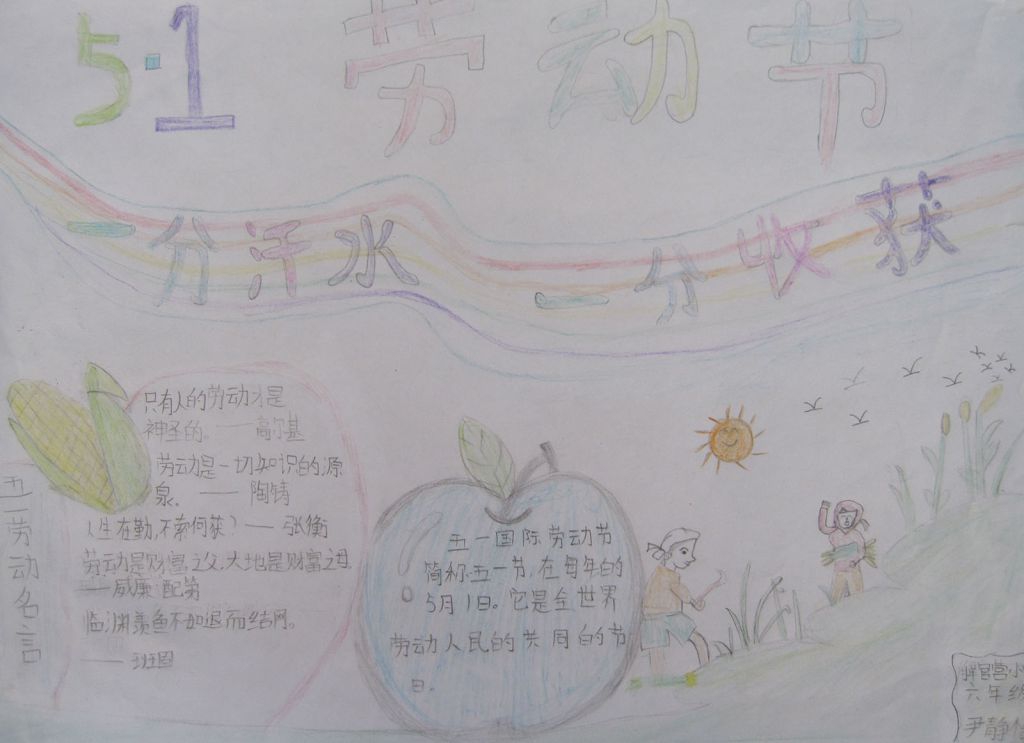 5·1 劳动节
一分汗水 一分收获
只有人的劳动才是
神圣的。——高尔基
劳动是一切知识的源
泉。——陶铸
人生在勤,不索何获?——张衡
劳动是财富之父,大地是财富之母
——威廉·配第
临渊羡鱼不如退而结网。
——班固
五一劳动名言
五一国际劳动节
简称五一节,在每年的
5月1日。它是全世界
劳动人民的共同的节
日。
官营小
六年级
尹静